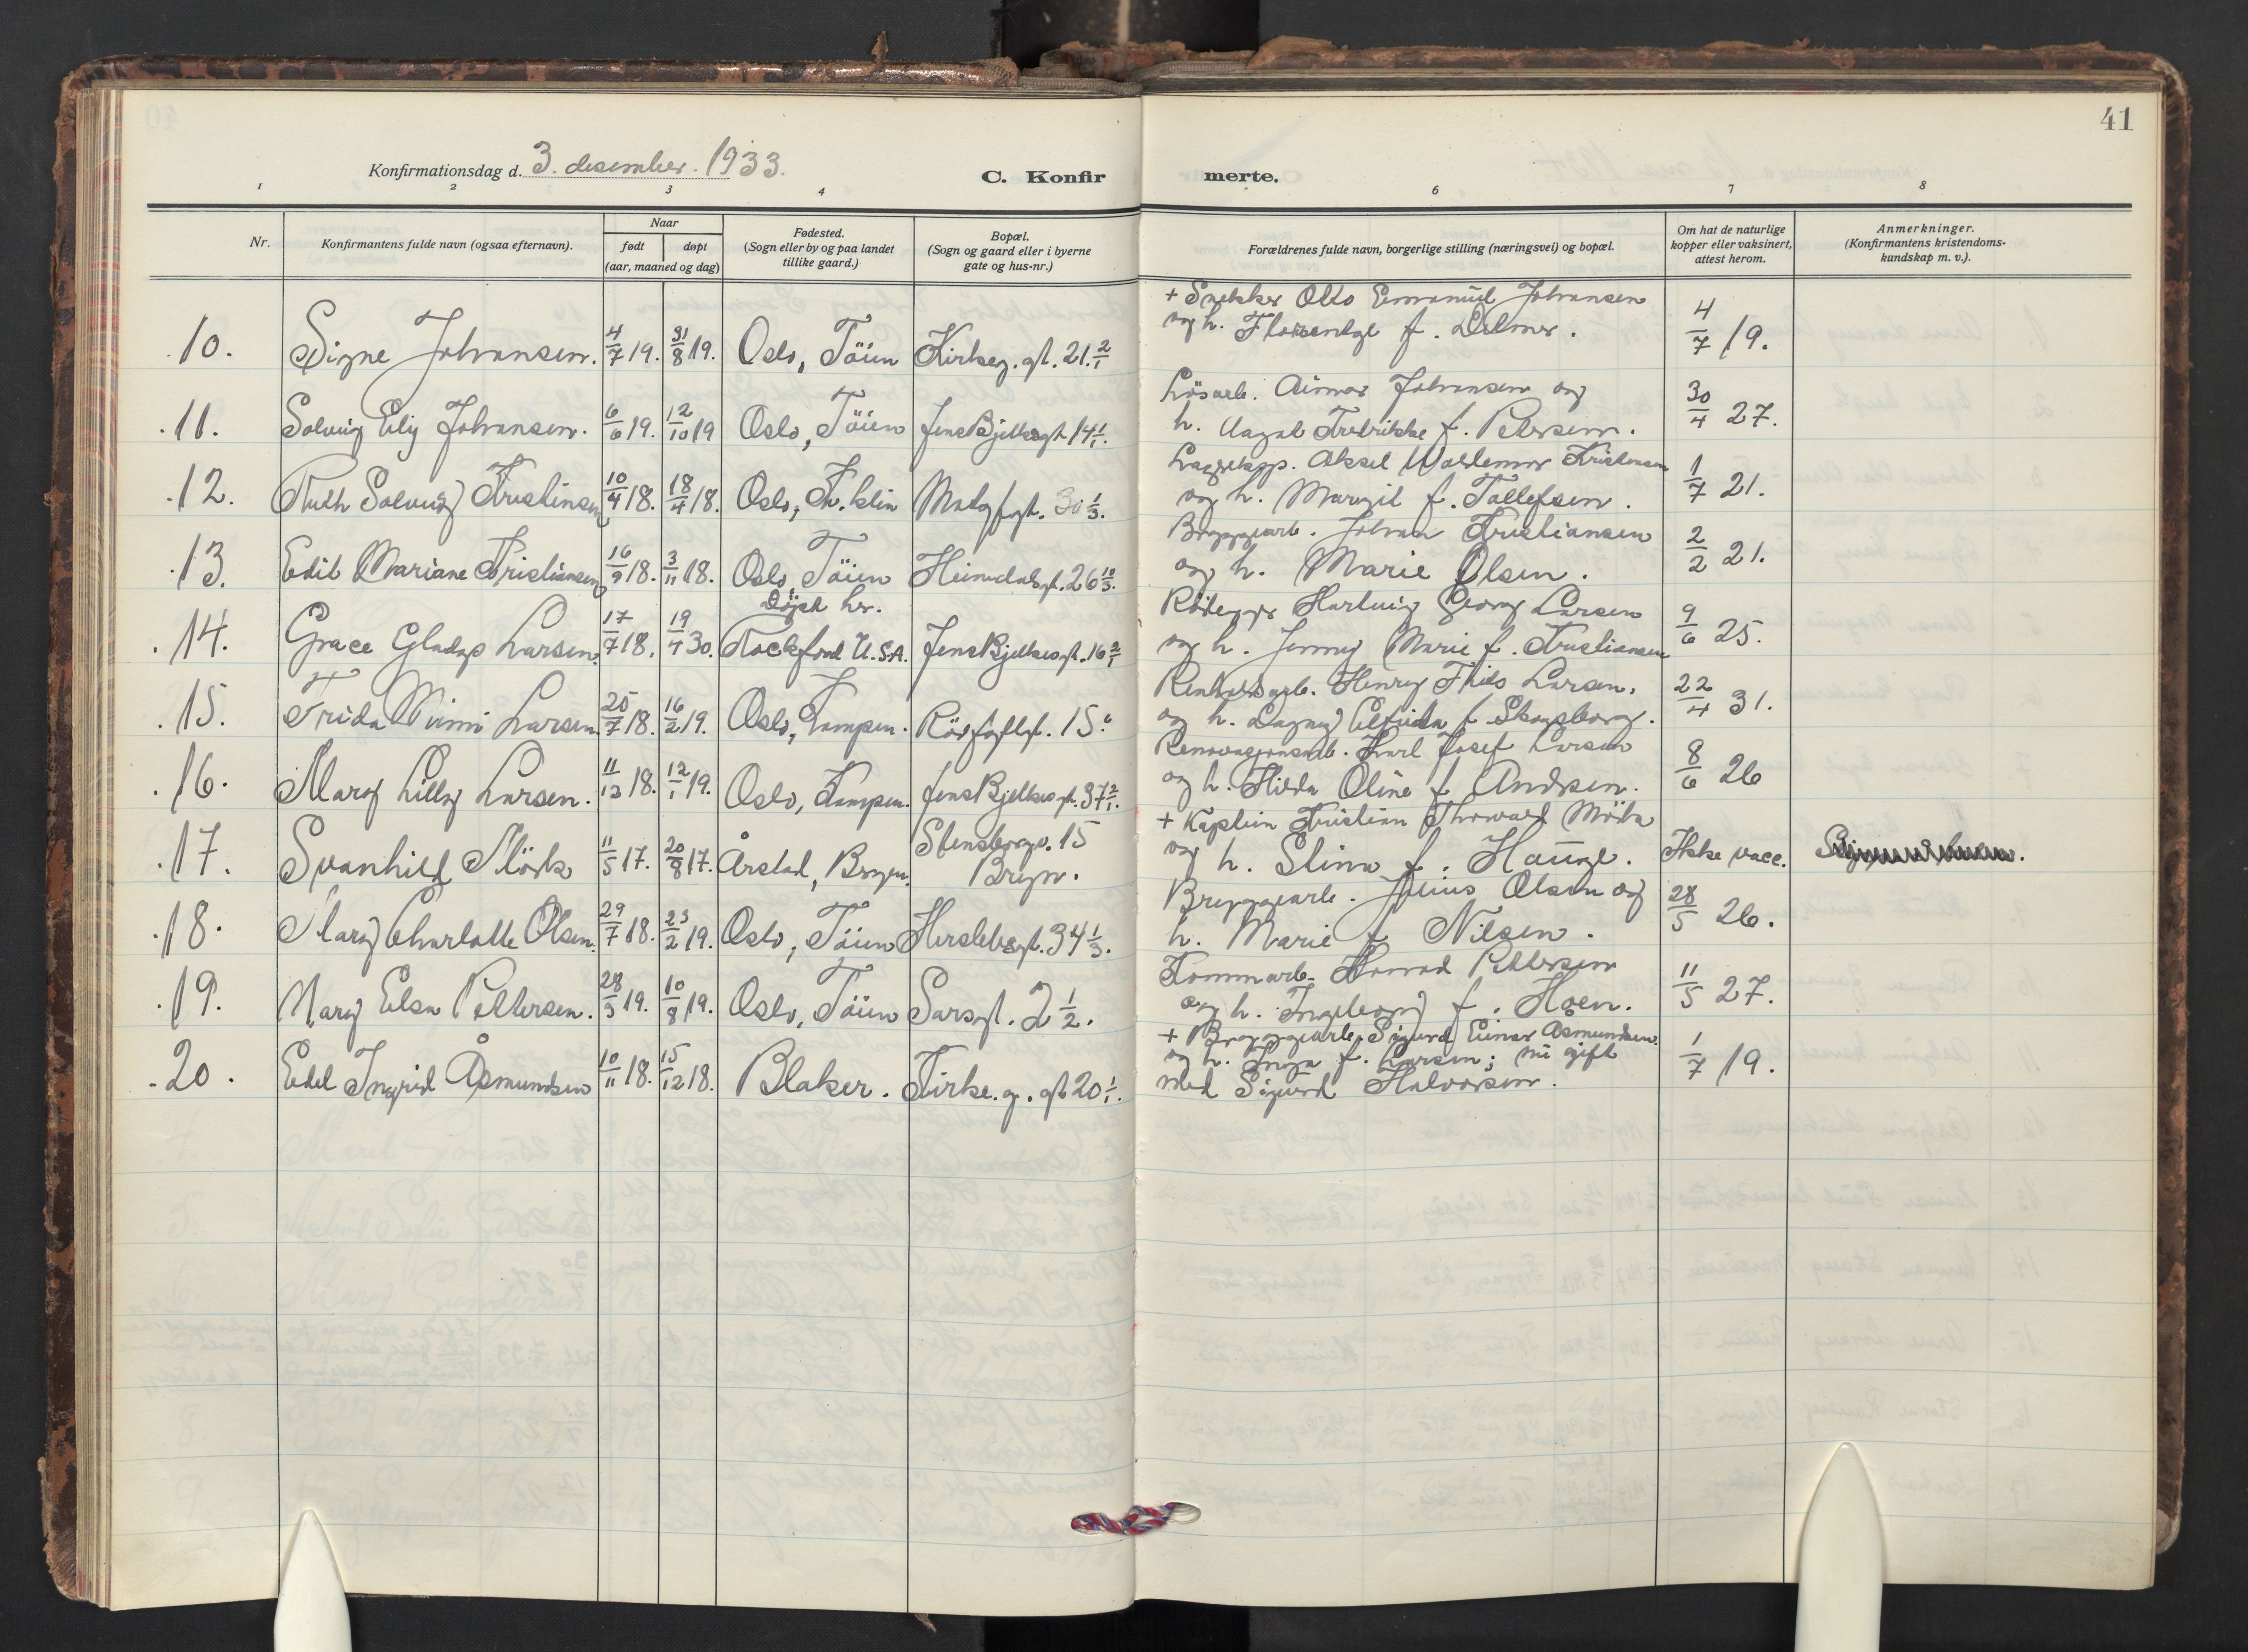 41
Konfirmationsdag d. 3. desember. 1933.
C. Konfir merte.
1 2 3 4 6 7 8
Nr.
Konfirmantens fulde navn (ogsaa efternavn).
Naar
født døpt
(aar, maaned og dag)
Fødested.
(Sogn eller by og paa landet
tillike gaard.)
Bopæl.
(Sogn og gaard eller i byerne
gate og hus-nr.)
Forældrenes fulde navn, borgerlige stilling (næringsvei) og bopæl.
Om hat de naturlige
kopper eller vaksinert,
attest herom.
Anmerkninger.
(Konfirmantens kristendoms-
kundskap m. v.).
+ Snekker Otto Emanuel Johansen
og h. f.
10. Signe Johansen. 4/7 19. 31/8 19. Oslo, Töien Kirkeg. gt. 21. 2/1 4/7 19.
Lösarb. Johansen og
11. Solveig Ely Johansen. 6/6 19. 12/10 19 Oslo, Töien Jens Bjelkesgt. 14 1/1. 30/4 27.
h. Aagot Fredrikke f. Petersen.
Aksel Waldemar Kristensen
12. Ruth Solveig Kristensen 10/4 18. 18/4 18. Oslo, 30 1/3. 1/7 21.
og h. Margit f. Tollefsen.
Bryggearb. Johan Kristiansen
13. Edit Mariane Kristiansen 16/9 18. 3/11 18. Oslo, Töien Heimdalsgt. 26 10/3. 2/2 21.
og h. Marie Olsen.
Döpt her.
Hartvig Georg Larsen
14. Grace Gladys Larsen. 17/7 18. 19/4 30. Rockford U.S.A. Jens Bjelkesgt. 16 2/1 9/6 25.
og h. Jenny Marie f. Kristiansen
Renholdsarb. Henry Larsen,
15. Frida Mimi Larsen. 25/7 18. 16/2 19. Oslo, Kampen. 15. 22/4 31.
og h. Dagny Elfrida f. Skogsborg.
Renovasjonsarb. Karl Josef Larsen
16. Mary Lilly Larsen. 11/12 18. 12/1 19. Oslo, Kampen. Jens Bjelkesgt. 37 2/1. 8/6 26
og h. Hilda Oline f. Andersen.
+ Kaptein Kristian Thorvald Mörk
Stensbergv. 15
17. Svanhild Mörk 11/5 17. 20/8 17. Årstad, Bergen. Bergen. Ikke vacc.
og h. Stina f. Hauge.
Bryggearb. Julius Olsen og
18. Mary Charlotte Olsen. 29/7 18. 23/2 19. Oslo, Töien Herslebsgt. 34 1/3. 28/5 26.
h. Marie f. Nilsen.
Kommarb. Konrad Pettersen
19. Mary Elsa Pettersen. 28/3 19. 10/8 19. Oslo, Töien Sarsgt. 2 1/2. 11/5 27.
og h. Ingeborg f. Hoen.
+ Bryggearb. Sigurd Einar Åsmundsen.
og h. Inga f. Larsen; nu gift
20. Edel Ingrid Åsmundsen 10/11 18. 15/12 18. Blaker. Kirke.g. gt 20 1/1. 1/7 19.
med Sigurd Halvorsen.